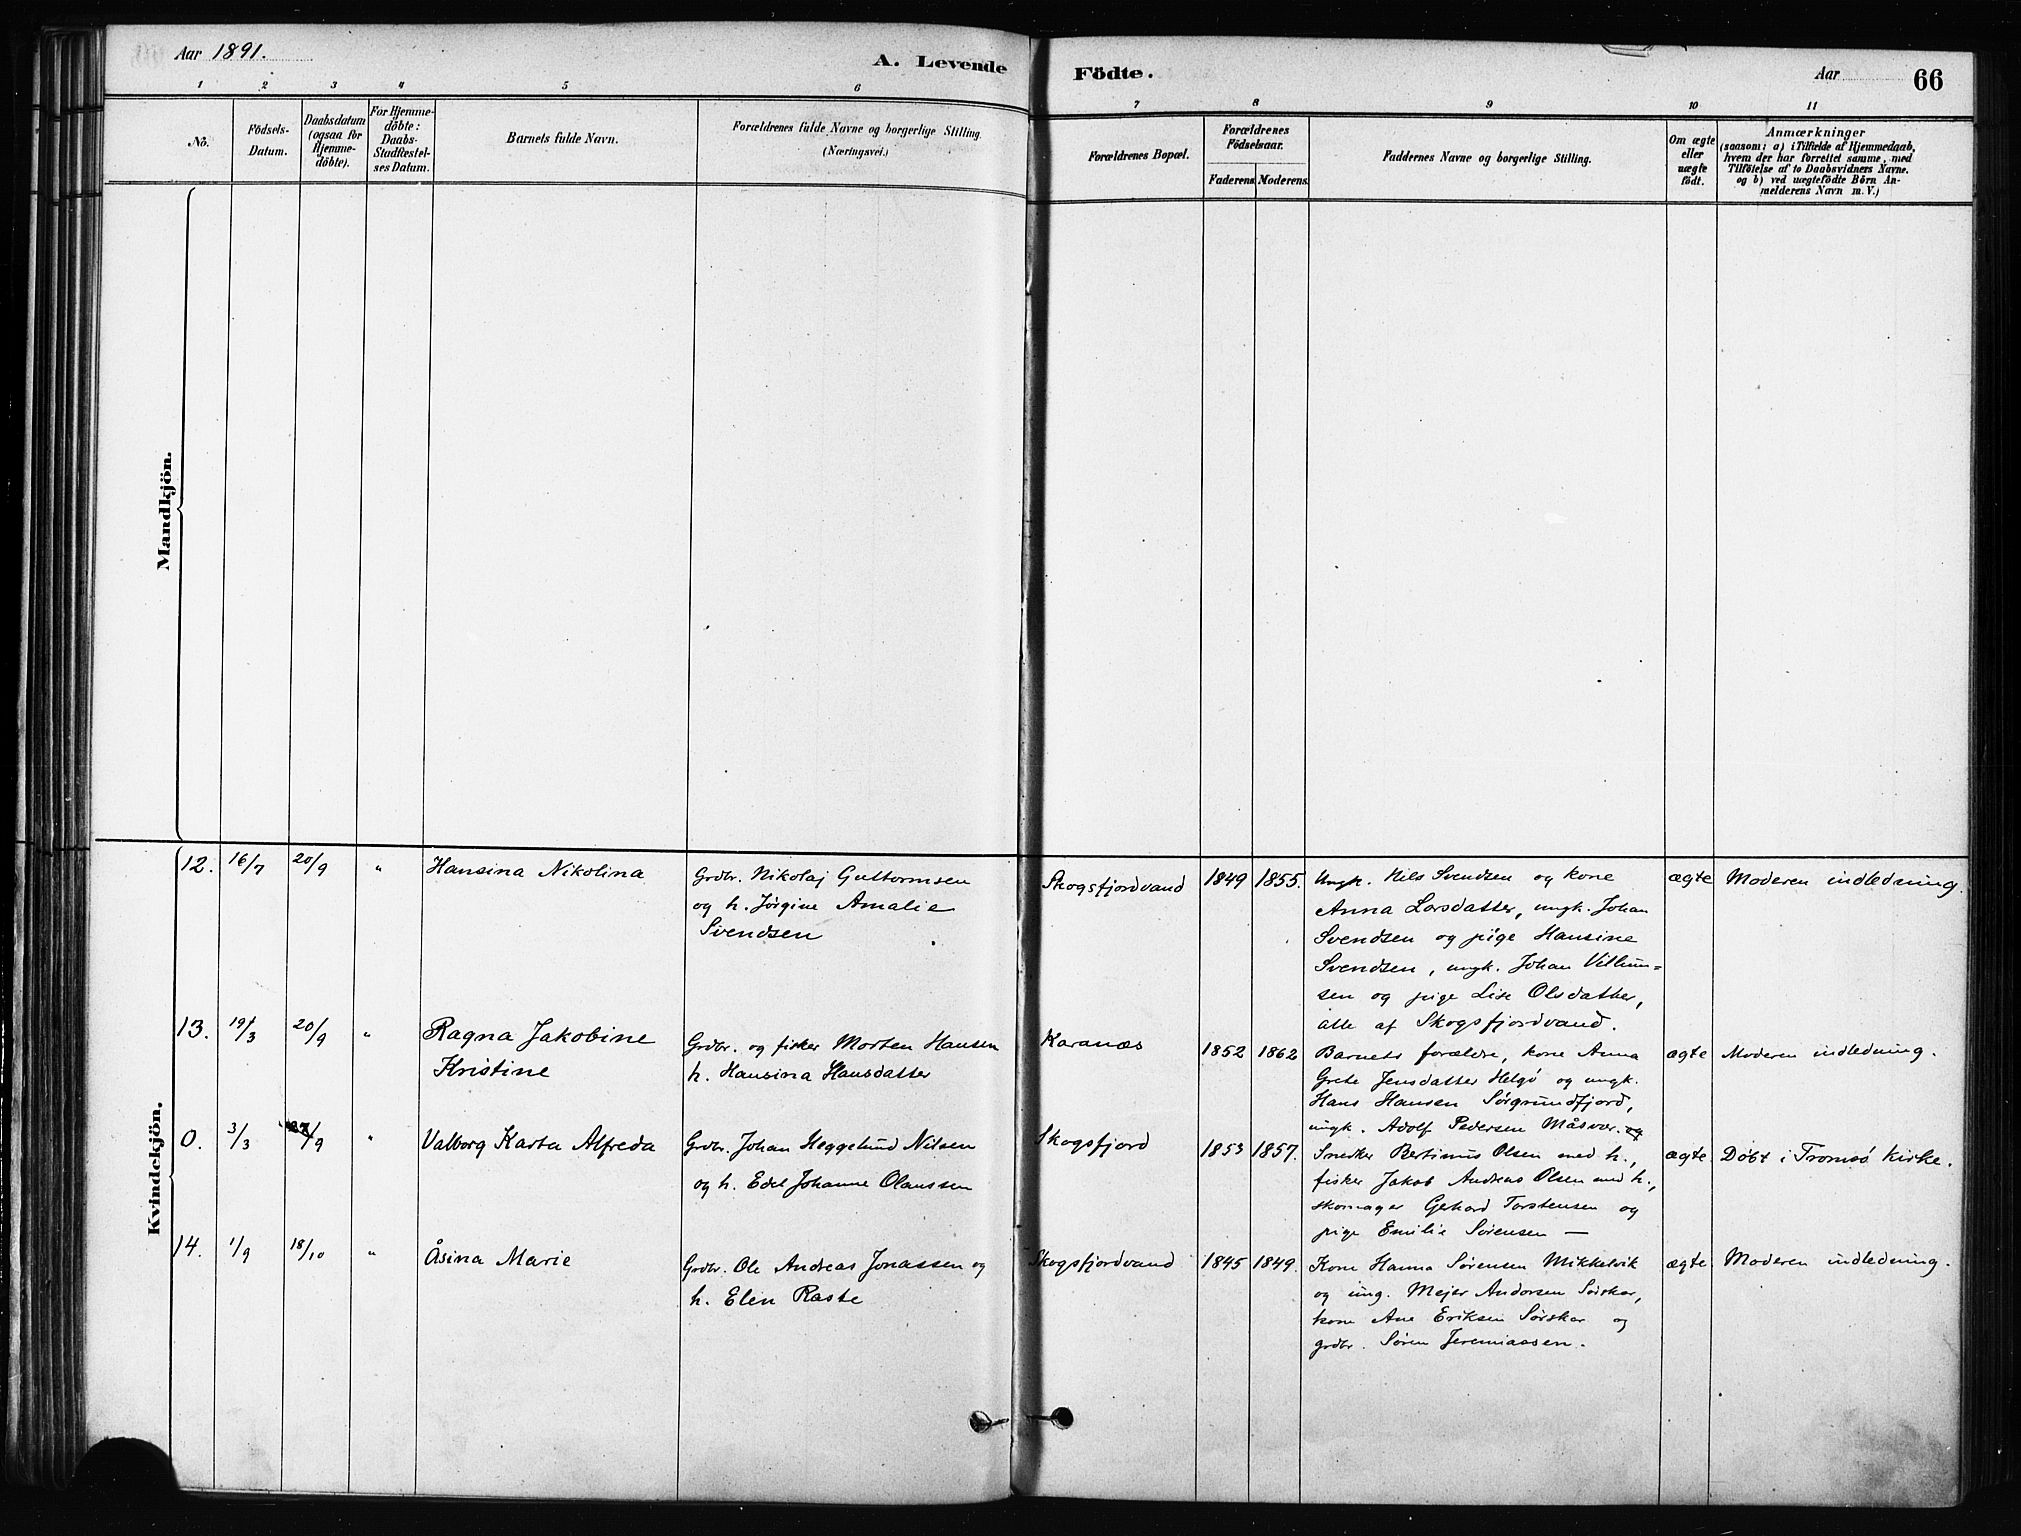 Aar 1891.
A. Levende
Födte.
Aar
66
1 2 3 4 5 6 7 8 9 10 11
No.
Födsels-
Datum.
Daabsdatum
(ogsaa for
Hjemme-
döbte).
For Hjemme-
döbte:
Daabs-
Stadfæstel-
ses Datum.
Barnets fulde Navn.
Forældrenes fulde Navne og borgerlige Stilling.
(Næringsvei.)
Forældrenes Bopæl.
Forældrenes
Födselsaar.
Faderens. Moderens.
Faddernes Navne og borgerlige Stilling.
Om ægte
eller
uægte
födt.
Anmærkninger
(saasom: a) i Tilfælde af Hjemmedaab,
hvem der har forrettet samme, med
Tilföielse af to Daabsvidners Navne.
og b) ved uægtefödte Börn An-
melderens Navn m. V.)
Mandkjön.
Kvindekjön.
12. 16/7 20/9 " Hansina Nikolina
Grdbr. Nikolaj Guttormsen
og h. Jørgine Amalie
Svendsen
Skogsfjordvand 1849 1855.
Ungk. Nils Svendsen og kone
Anna Larsdatter, ungk. Johan
Svendsen og pige Hansine
Svendsen, ungk. Johan Villum=
sen og pige Lise Olsdatter,
alle af Skogsfjordvand.
ægte Moderen indledning.
13. 19/3 20/9 " Ragna Jakobine
Kristine
Grdbr. og fisker Morten Hansen
h. Hansina Hansdatter
Karanæs 1852 1862
Barnets forældre, kone Anna
Grete Jensdatter Helgö og ungk.
Hans Hansen Sørgrundfjord,
ungk. Adolf Pedersen Måsvær. og
ægte Moderen indledning.
0. 3/3 27/9 " Valborg Karta Alfreda
Grdbr. Johan Heggelund Nilsen
og h. Edel Johanne Olaussen
Skogsfjord 1853 1857.
Snedker Bertinus Olsen med h.,
fisker Jakob Andreas Olsen med h.,
skomager Gerhard Torstensen og
pige Emilie Sørensen —
ægte Døbt i Tromsø kirke.
14. 1/9 18/10 " Åsina Marie
Grdbr. Ole Andreas Jonassen og
h. Elen Raste
Skogsfjordvand 1845 1849.
Kone Hanna Sørensen Mikkelvik
og ung. Mejer Andorsen Sørskar,
kone Ane Eriksen Sørskar og
grdbr. Søren Jeremiassen.
ægte Moderen indledning.